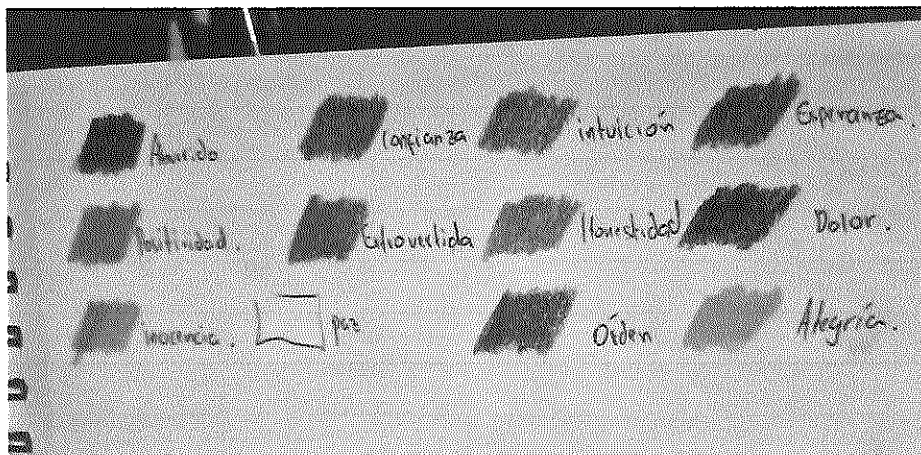 Confianza
intuición
Esperanza.
Positividad.
Extrovertida
Honestidad
Dolor.
Inocencia.
paz
Orden
Alegría.